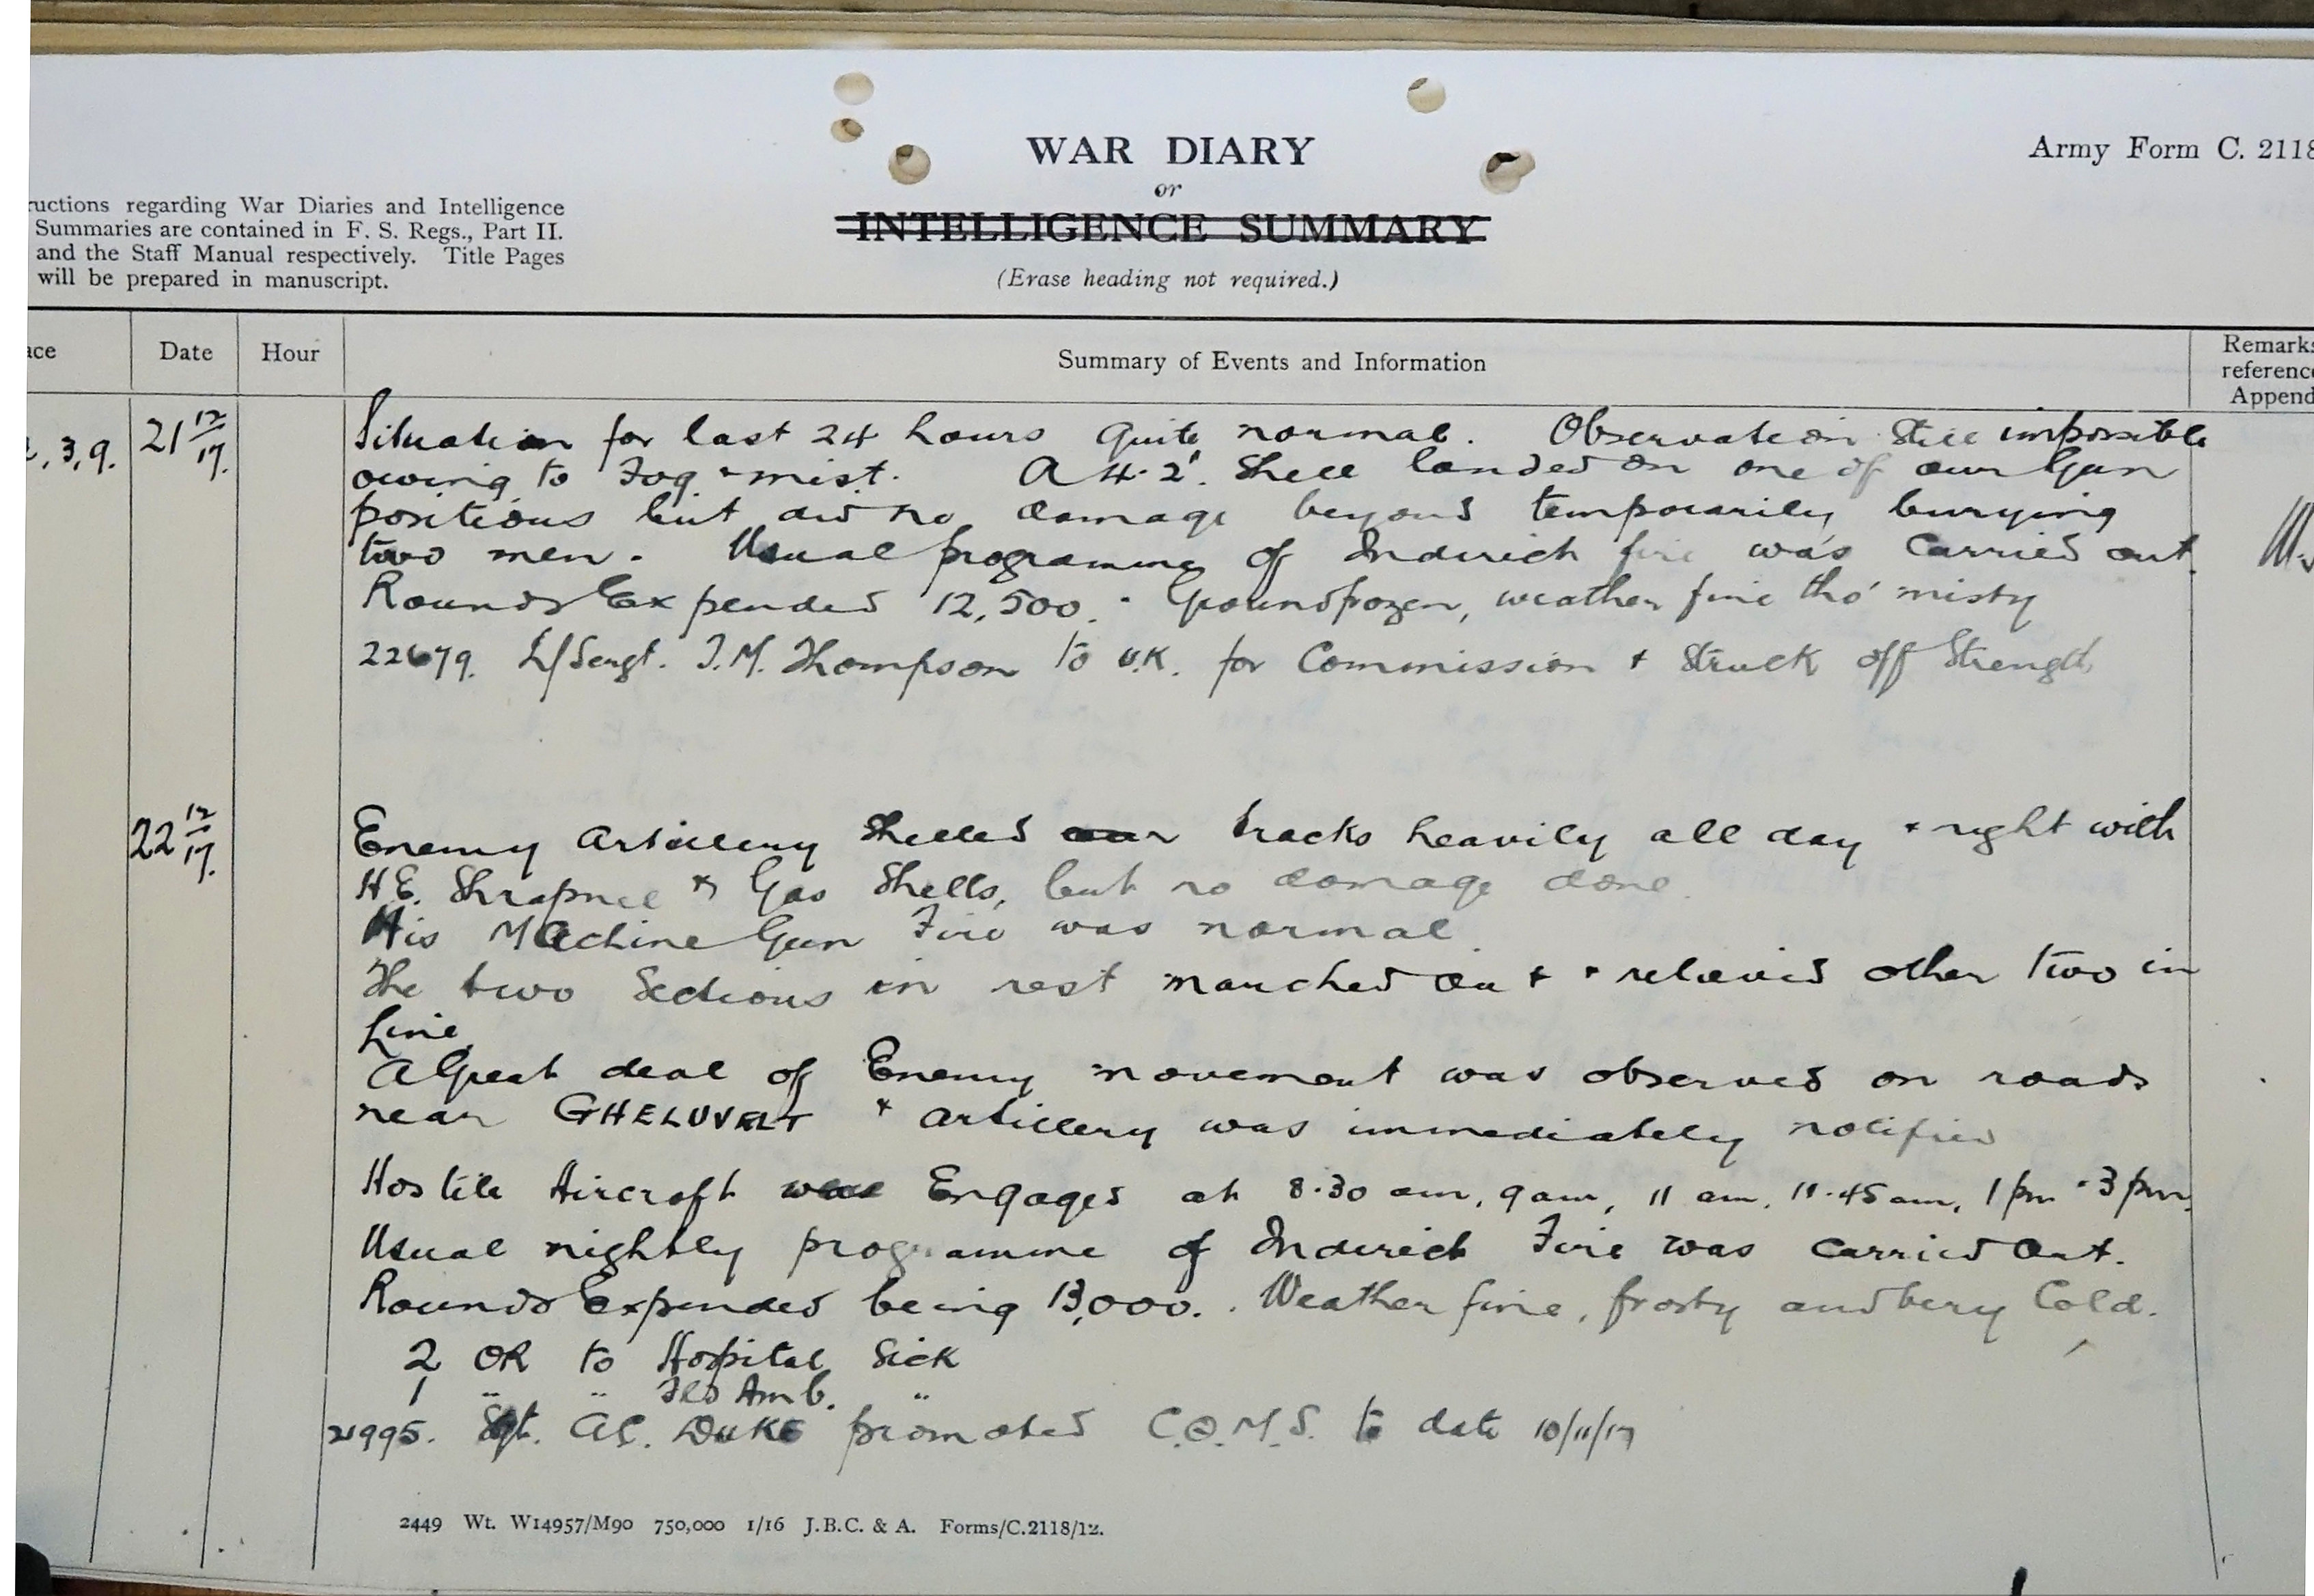 WAR DIARY
or
INTELLIGENCE SUMMARY
(Erase heading not required.)
Army Form C. 2118
ructions regarding War Diaries and Intelligence
Summaries are contained in F. S. Regs., Part II.
and the Staff Manual respectively. Title Pages
will be prepared in manuscript.
ace Date Hour Summary of Events and Information Remarks
reference
Append
, 3, 9. 21 12/17. Situation for last 24 hours quite normal. Observation still impossible
owing to Fog + mist. A 4.2". Shell landed on one of our Gun
positions but did no damage beyond temporarily burying
two men. Usual programme of Indirect fire was carried out.
Rounds Expended 12,500. Ground frozen, weather fine tho' misty
22679. L/Sergt. J.M. Thompson to U.K. for Commission + Struck off Strength
22 12/17. Enemy Artillery Shelled our tracks heavily all day + night with
H.E. Shrapnel + Gas Shells, but no damage done.
His Machine Gun Fire was normal.
The two Sections in rest marched out + relieved other two in
Line.
A Great deal of Enemy movement was observed on roads
near GHELUVELT + artillery was immediately notified
Hostile Aircraft was Engaged at 8.30 am, 9 am, 11 am, 11.45 am, 1 pm + 3 pm.
Usual nightly programme of Indirect Fire was carried Out.
Rounds Expended being 13,000. Weather fine, frosty and very Cold.
2 OR to Hospital Sick
1 " " Fld Amb. "
21995. Sgt. A.C. DUKE promoted C.Q.M.S. to date 10/11/17
2449 Wt. W14957/M90 750,000 1/16 J.B.C. & A. Forms/C.2118/12.